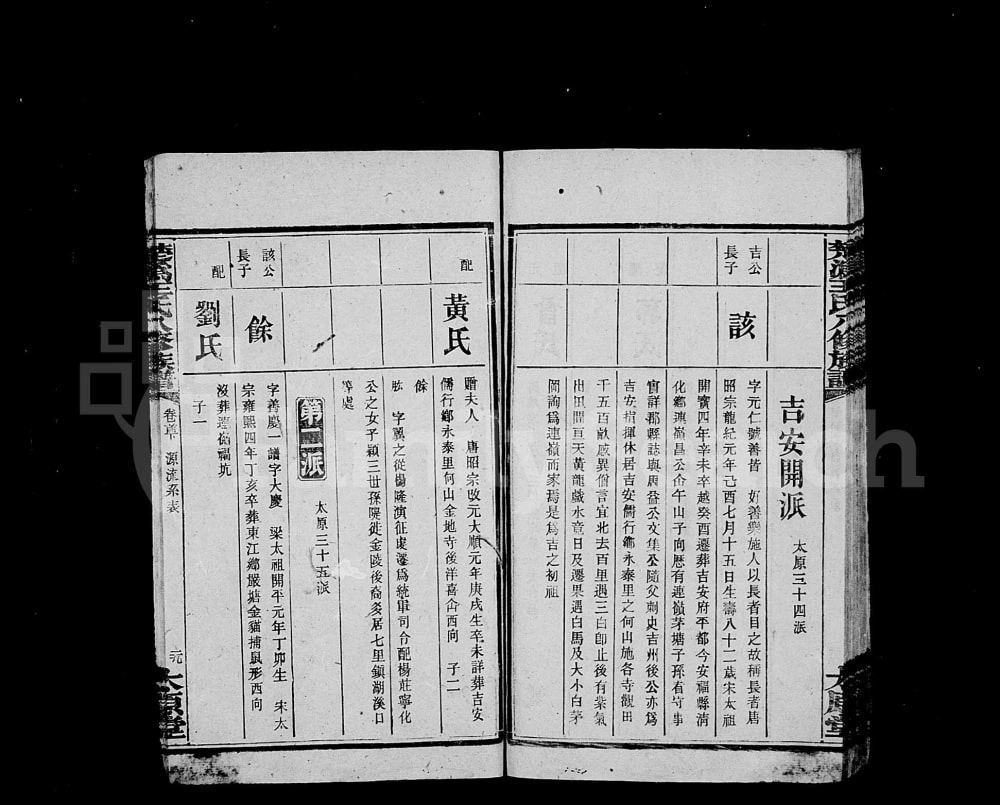 吉安開派
太原三十四派
吉公長子
該
字元仁號善昔 好善樂施人以長者目之故稱長者唐
昭宗龍紀元年己酉七月十五日生壽八十二歲宋太祖
開寶四年辛未卒越癸酉遷葬吉安府平都今安福縣清
化鄉連嶺昌公仚午山子向歷有連嶺茅塘子孫看守事
實詳郡縣誌與周益公文集公隨父刺史吉州後公亦為
吉安指揮休居吉安儒行鄉永泰里之何山施各寺觀田
千五百畝感異僧言宜北去百里遇三白卽止後有紫氣
出田間亘天黃龍戲水竟日及遷果遇白馬及大小白茅
岡詢爲連嶺而家焉是爲吉之初祖
配
黃氏
贈夫人 唐昭宗改元大順元年庚戌生卒未詳葬吉安
儒行鄉永泰里何山金地寺後洋喜仚西向 子二
餘
字翼之從楊隆演征虔遷爲統軍司合配楊莊寧化
公之女子穎三世孫隄徙金陵後裔多居七里鎮湖溪口
等處
第二派
太原三十五派
該公長子
餘
字善慶一譜字大慶 梁太祖開平元年丁卯生 宋太
宗雍熙四年丁亥卒葬東江鄉嚴塘金貓捕鼠形西向
配
劉氏
沒葬
福坑
子一
氏八修族譜
卷首下 源流系表
元